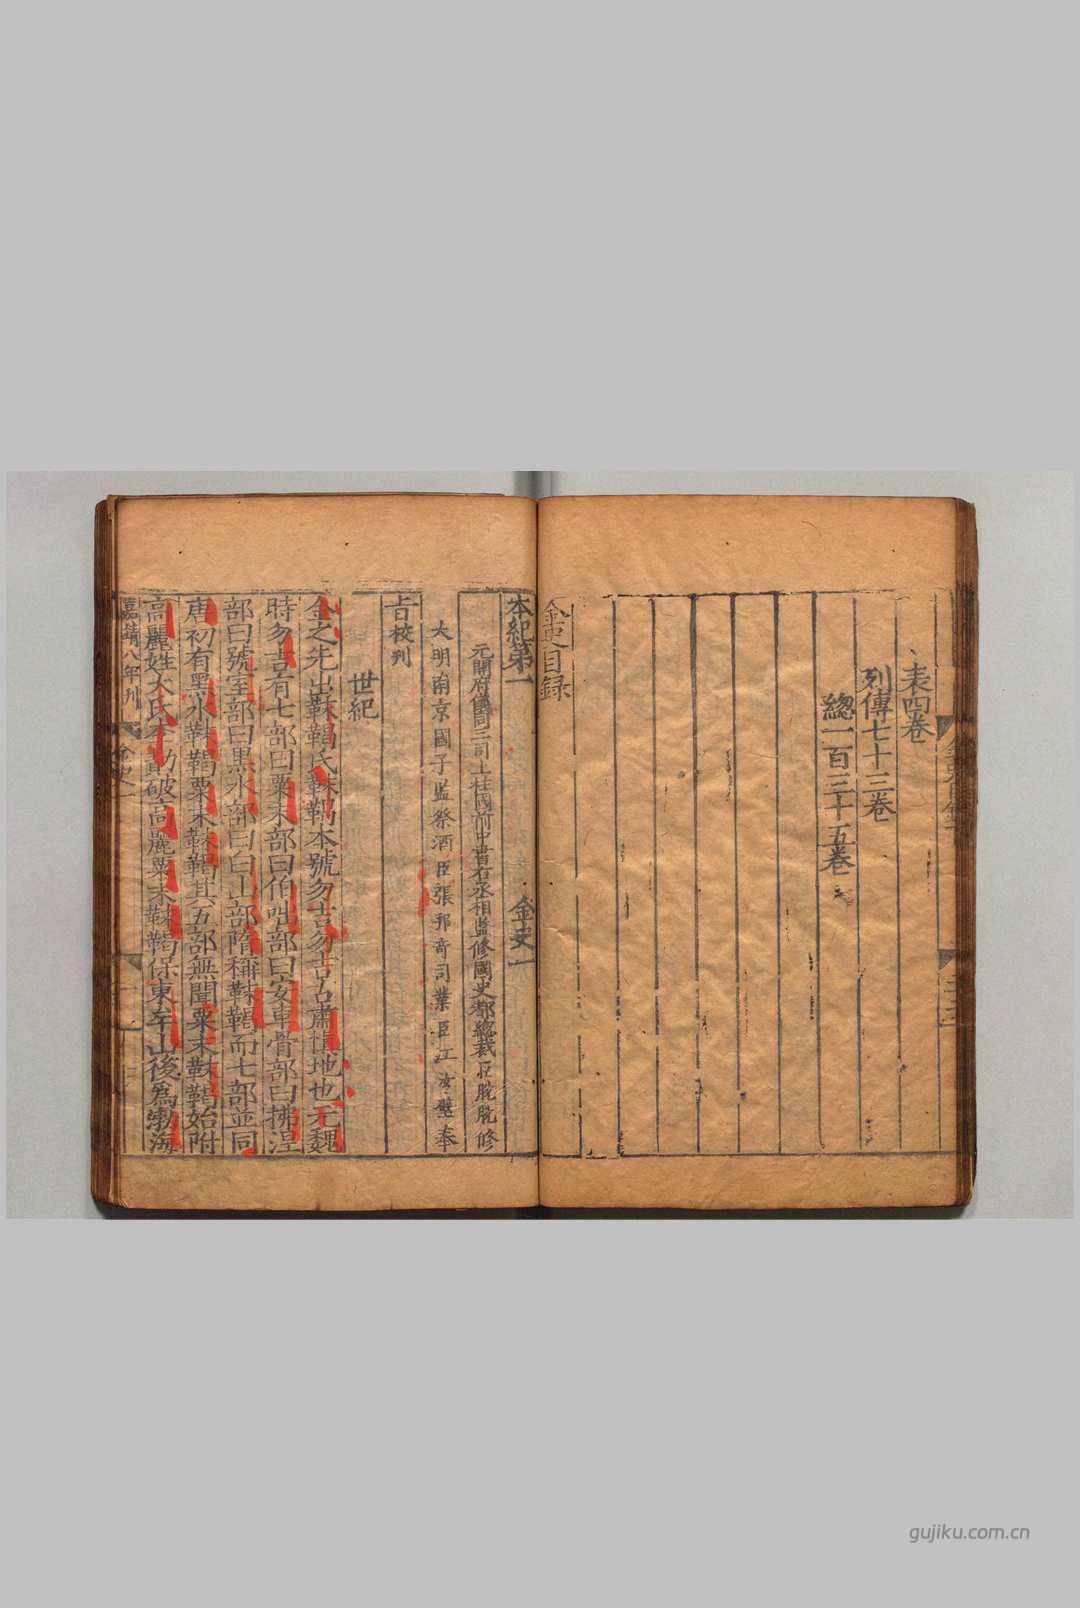 表四卷
列傳七十三卷
總一百三十五卷
金史目録
本紀第一 金史一
元開府儀同三司上柱國前中書右丞相監修國史都總裁臣脫脫修
大明南京國子監祭酒臣張邦奇司業臣江汝璧奉
旨校刋
世紀
金之先出靺鞨氏靺鞨本號勿吉勿吉古肅慎地也元魏
時勿吉有七部曰粟末部曰伯咄部曰安車骨部曰拂涅
部曰號室部曰黑水部曰白山部隋稱靺鞨而七部並同
唐初有黑水靺鞨粟末靺鞨其五部無聞粟末靺鞨始附
高麗姓大氏李勣破高麗粟末靺鞨保東牟山後爲渤海
嘉靖八年刊
金史一
gujiku.com.cn